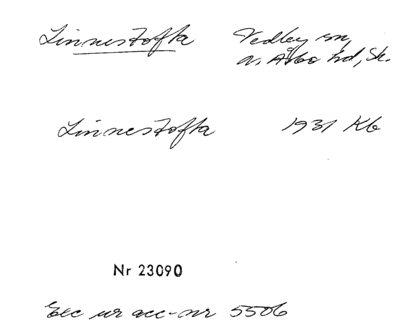 Linnestofta Vedby sn,
N. Åsbo hd, Sk.
Linnestofta 1931 Kb
Nr 23090
Exc ur acc-nr 5506